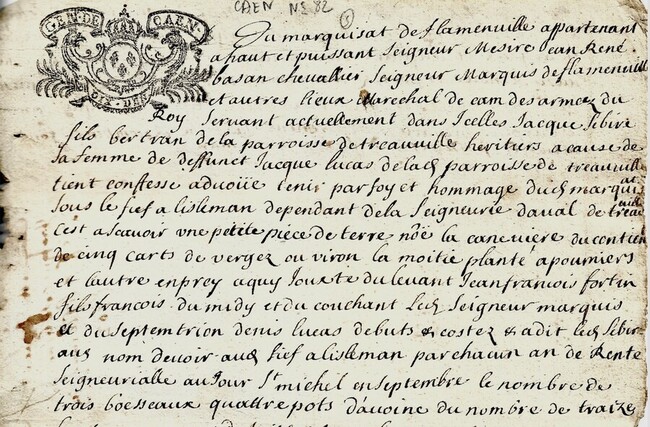 CAEN N° 82
GEN. DE CAEN.
DIX. DEN.
Du marquisat de flamenville appartenant
a haut et puissant Seigneur Mesire Jean René
basan chevallier Seigneur Marquis de flamenvill
et autres lieux Marechal de cam des armez du
Roy Servant actuellement dans Icelles Jacque Lebire
fils bertran de la parroisse de treauville heritiers a cause de
sa femme de deffunct Jacque lucas de lad parroisse de treauville
tient confesse advoüe tenir par foy et hommage dud marquisat
sous le fief a lisleman dependant de la Seigneurie daval de treauville
cest a scavoir une petite piéce de terre nõe la caneviere du contien
de cinq carts de vergez ou viron la moitie planté a poumiers
et lautre en prey a quy Jouxte du levant Jean francois fortin
fils francois du midy et du couchant led Seigneur marquis
et du Septemtrion denis lucas debuts & costez & adit led Lebir
aud nom devoir aud fief a lisleman par chacun an de Rente
Seigneurialle au Jour St michel en septembre le nombre de
trois boesseaux quattre pots d'avoine du nombre de traize